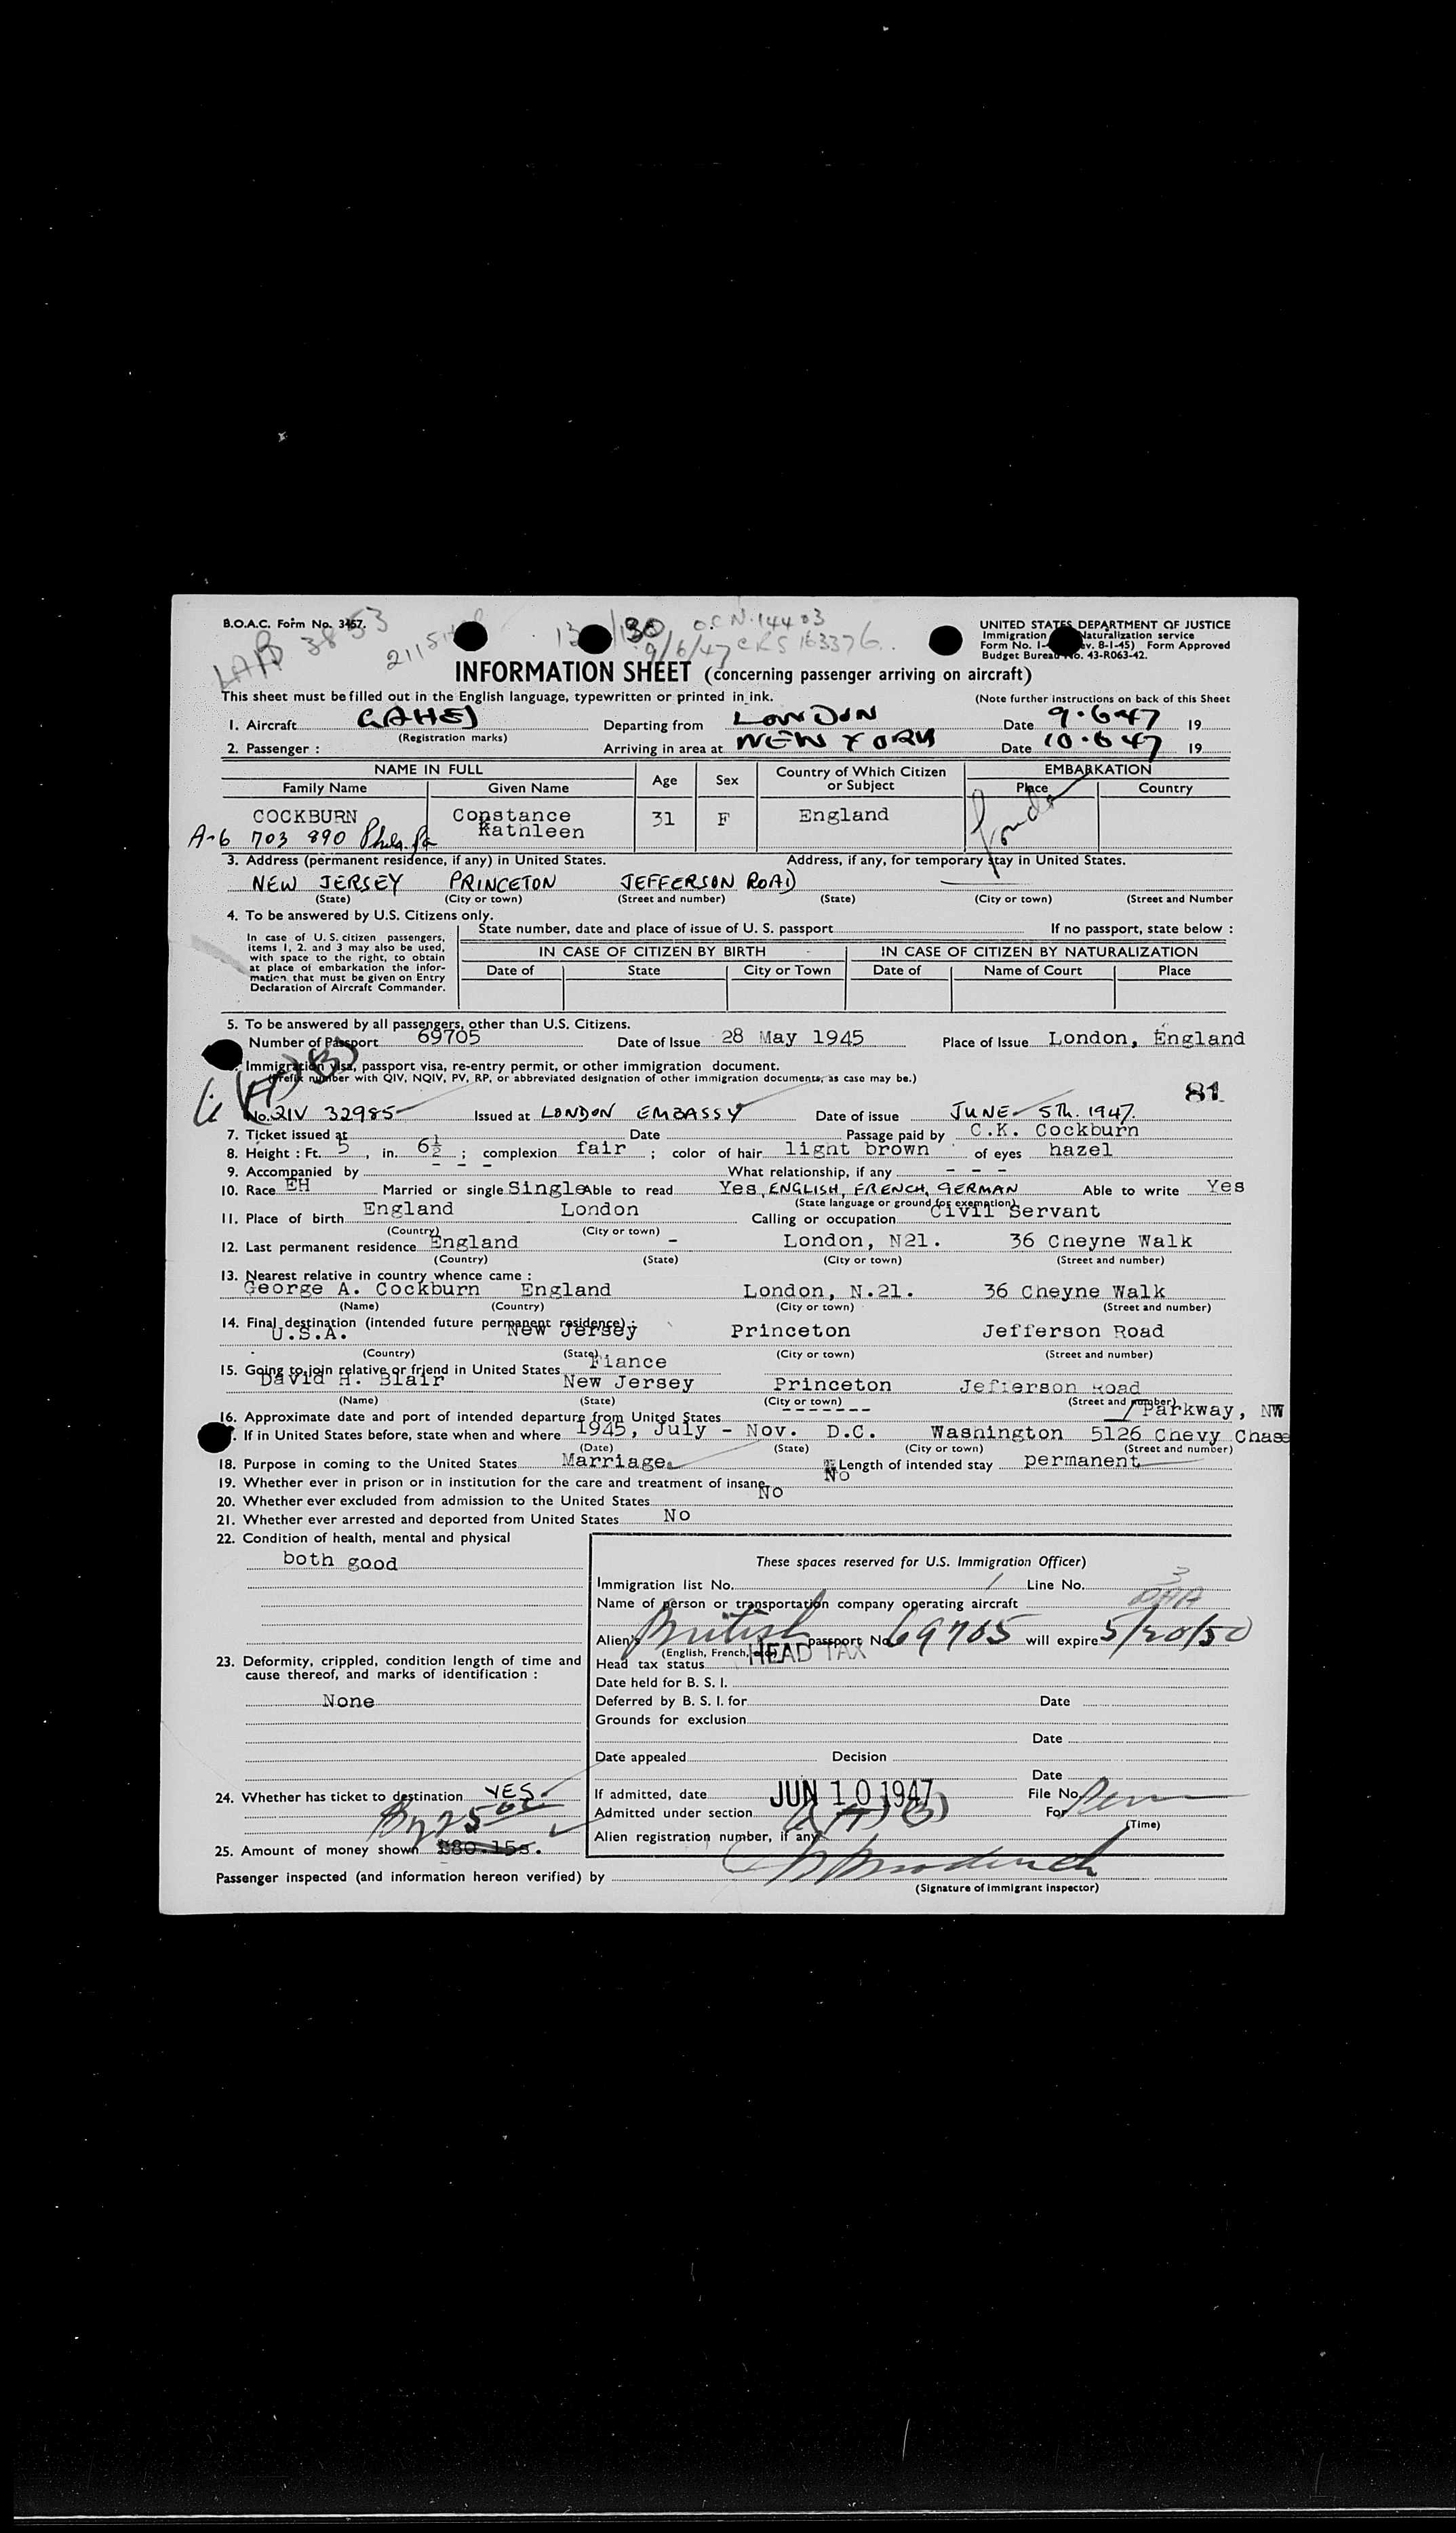 B.O.A.C. Form No. 3457.
LAB 3853
130
9/6/47 CRS 163376
UNITED STATES DEPARTMENT OF JUSTICE
Immigration Naturalization service
Form No. I- ev. 8-1-45) Form Approved
Budget Bureau No. 43-R063-42.
INFORMATION SHEET (concerning passenger arriving on aircraft)
This sheet must be filled out in the English language, typewritten or printed in ink. (Note further instructions on back of this Sheet
1. Aircraft GAHEJ Departing from LONDON Date 9.6.47 19
(Registration marks)
2. Passenger : Arriving in area at NEW YORK Date 10.6.47 19
NAME IN FULL Age Sex Country of Which Citizen or Subject EMBARKATION
Family Name Given Name Place Country
COCKBURN Constance Kathleen 31 F England London
A-6 703 890 Phila. Pa
3. Address (permanent residence, if any) in United States. Address, if any, for temporary stay in United States.
NEW JERSEY PRINCETON JEFFERSON ROAD
(State) (City or town) (Street and number) (State) (City or town) (Street and Number
4. To be answered by U.S. Citizens only.
In case of U.S. citizen passengers, items 1, 2. and 3 may also be used, with space to the right, to obtain at place of embarkation the information that must be given on Entry Declaration of Aircraft Commander.
State number, date and place of issue of U. S. passport If no passport, state below :
IN CASE OF CITIZEN BY BIRTH IN CASE OF CITIZEN BY NATURALIZATION
Date of State City or Town Date of Name of Court Place
5. To be answered by all passengers, other than U.S. Citizens.
Number of Passport 69705 Date of Issue 28 May 1945 Place of Issue London, England
Immigration visa, passport visa, re-entry permit, or other immigration document.
(Prefix number with QIV, NQIV, PV, RP, or abbreviated designation of other immigration documents, as case may be.)
81
No. QIV 32985 Issued at LONDON EMBASSY Date of issue JUNE 5th. 1947.
7. Ticket issued at Date Passage paid by C.K. Cockburn
8. Height : Ft. 5, in. 6½ ; complexion fair ; color of hair light brown of eyes hazel
9. Accompanied by - - - What relationship, if any - - -
10. Race EH Married or single Single Able to read Yes, ENGLISH, FRENCH, GERMAN Able to write Yes
(State language or ground for exemption)
11. Place of birth England London Calling or occupation Civil Servant
(Country) (City or town)
12. Last permanent residence England - London, N21. 36 Cheyne Walk
(Country) (State) (City or town) (Street and number)
13. Nearest relative in country whence came :
George A. Cockburn England London, N.21. 36 Cheyne Walk
(Name) (Country) (City or town) (Street and number)
14. Final destination (intended future permanent residence) :
U.S.A. New Jersey Princeton Jefferson Road
(Country) (State) (City or town) (Street and number)
15. Going to join relative or friend in United States Fiance
David H. Blair New Jersey Princeton Jefferson Road
(Name) (State) (City or town) (Street and number)
16. Approximate date and port of intended departure from United States - - - - - - -
/Parkway, NW
If in United States before, state when and where 1945, July - Nov. D.C. Washington 5126 Chevy Chase
(Date) (State) (City or town) (Street and number)
18. Purpose in coming to the United States Marriage. Length of intended stay permanent
19. Whether ever in prison or in institution for the care and treatment of insane No
20. Whether ever excluded from admission to the United States No
21. Whether ever arrested and deported from United States No
22. Condition of health, mental and physical
both good
23. Deformity, crippled, condition length of time and cause thereof, and marks of identification :
None
24. Whether has ticket to destination YES
25. Amount of money shown £80.15s.
These spaces reserved for U.S. Immigration Officer)
Immigration list No. Line No. 3
Name of person or transportation company operating aircraft
Alien's British passport No 69705 will expire 5/20/50
(English, French, etc.)
Head tax status HEAD TAX
Date held for B. S. I.
Deferred by B. S. I. for Date
Grounds for exclusion
Date
Date appealed Decision
Date
If admitted, date JUN 10 1947 File No.
Admitted under section For Perm
(Time)
Alien registration number, if any
Passenger inspected (and information hereon verified) by
(Signature of immigrant inspector)